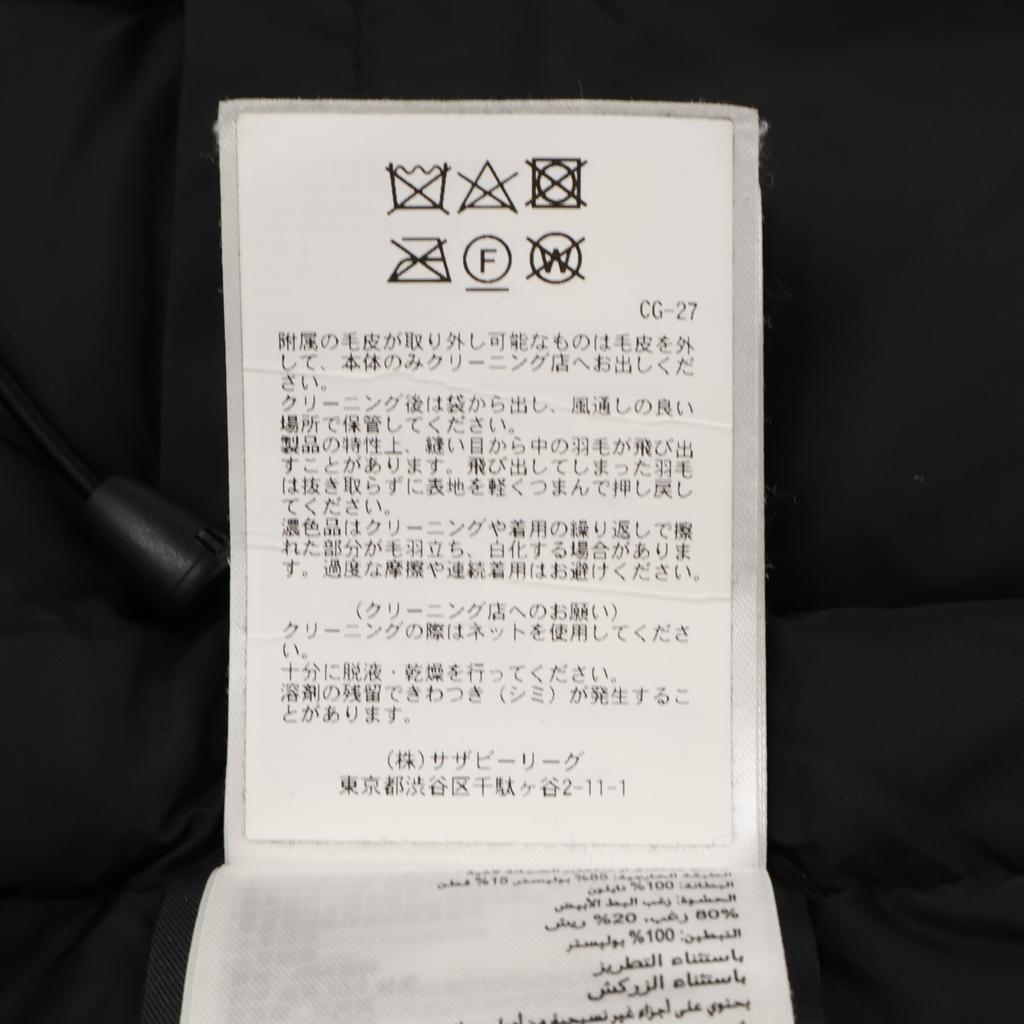 F W
CG-27
附属の毛皮が取り外し可能なものは毛皮を外
して、本体のみクリーニング店へお出しくだ
さい。
クリーニング後は袋から出し、風通しの良い
場所で保管してください。
製品の特性上、縫い目から中の羽毛が飛び出
すことがあります。飛び出してしまった羽毛
は抜き取らずに表地を軽くつまんで押し戻し
てください。
濃色品はクリーニングや着用の繰り返しで擦
れた部分が毛羽立ち、白化する場合がありま
す。過度な摩擦や連続着用はお避けください。
(クリーニング店へのお願い)
クリーニングの際はネットを使用してくださ
い。
十分に脱液・乾燥を行ってください。
溶剤の残留できわつき(シミ)が発生するこ
とがあります。
(株)サザビーリーグ
東京都渋谷区千駄ヶ谷2-11-1
الطبقة الخارجية: 85% بوليستر 15% قطن
البطانة: 100% نايلون
الحشوة: زغب البط الأبيض
80% زغب، 20% ريش
التبطين: 100% بوليستر
باستثناء التطريز
باستثناء الزركش
يحتوي على أجزاء غير نسيجية من